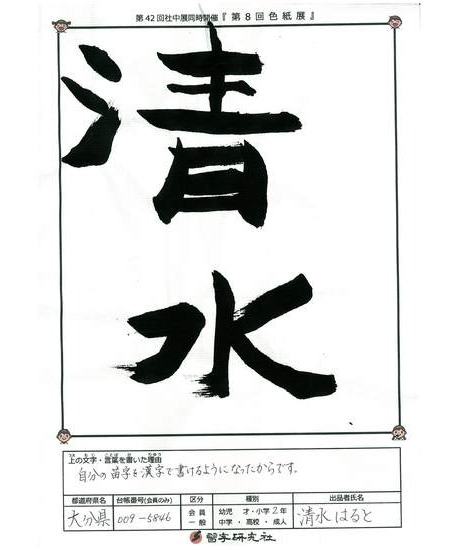 第42回社中展同時開催『第8回色紙展』
清
水
上の文字・言葉を書いた理由
自分の苗字を漢字で書けるようになったからです。
都道府県名 台帳番号(会員のみ) 区分 種別 出品者氏名
大分県 009-5846 会員 一般 幼児 才・小学2年 中学・高校・成人 清水はると
習字研究社